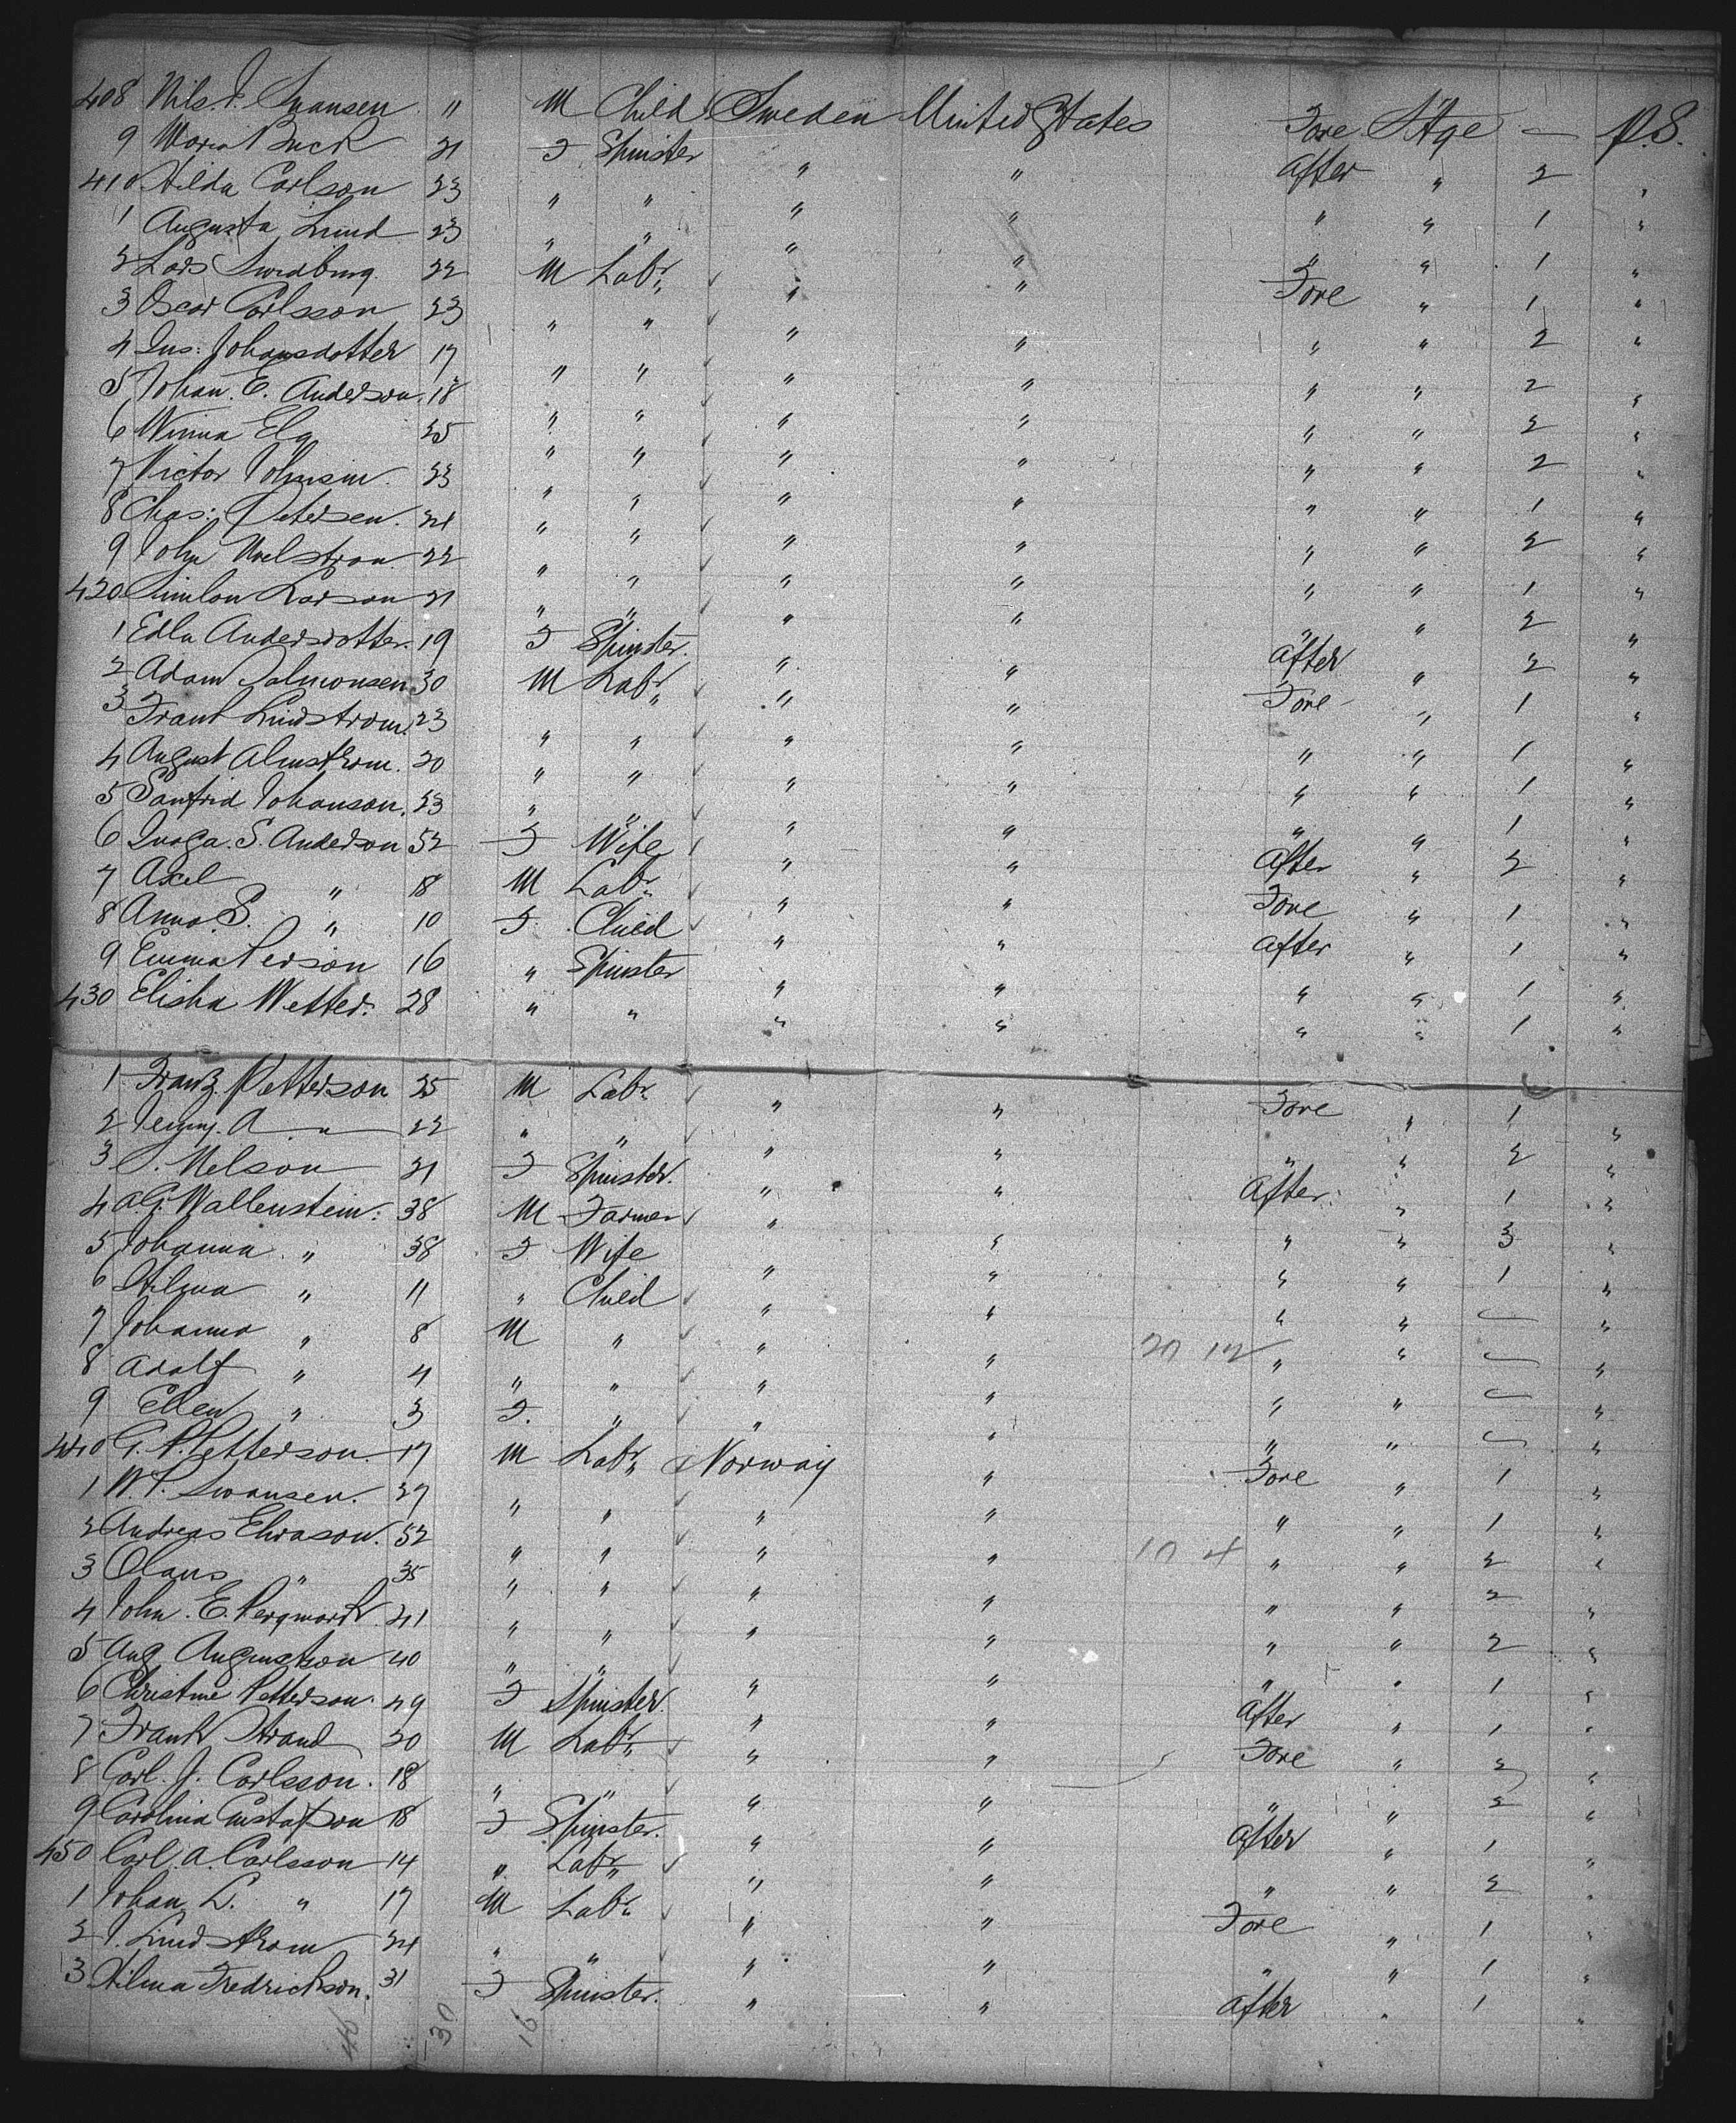 408 Nils. P. Swansen " M Child Sweden United States Fore St'Age — P.S.
9 Maria Buck 21 F Spinster " " After " 2 "
410 Hilda Carlson 23 " " " " " " 1 "
1 Augusta Lund 23 " " " " " " 1 "
2 Lars Swedburg. 22 M Labr " " Fore " 1 "
3 Oscar Carlsson 23 " " " " " " 2 "
4 Gus: Johansdotter 17 " " " " " " 2 "
5 Johan. E. Anderson. 18 " " " " " " 2 "
6 Elg 25 " " " " " " 2 "
7 Victor Johnson. 23 " " " " " " 1 "
8 Chas: Petersen. 24 " " " " " " 2 "
9 John 22 " " " " " " 1 "
420 Larson 21 " " " " " " 2 "
1 Edla Andersdotter. 19 F Spinster. " " After " 2 "
2 Adam Salmonsen 30 M Labr " " Fore " 1 "
3 Frank Lindstrom. 23 " " " " " " 1 "
4 August Almstrom. 20 " " " " " " 1 "
5 Sanfrid Johanson. 23 " " " " " " 1 "
6 S. Anderson 52 F Wife " " After " 2 "
7 Axel " 18 M Labr " " Fore " 1 "
8 Anna. S. " 10 F. Child " " After " 1 "
9 Emma Person 16 " Spinster " " " " 1 "
430 Elisha Wetter. 28 " " " " " " 1 "
1 Franz. Petterson 25 M Labr " " Fore " 1 "
2 A " 22 " " " " " " 2 "
3 Nelson 21 F Spinster. " " After " 1 "
4 A.G. Wallenstein: 38 M Farmer " " " " 3 "
5 Johanna " 38 F Wife " " " " 1 "
6 Hilma " 11 " Child " " " " — "
7 Johanna " 8 M " " " 20 12 " " — "
8 Adolf " 4 " " " " " " — "
9 Ellen " 3 F. " " " " " — "
440 G. P. Petterson. 17 M Labr Norway " Fore " 1 "
1 W. P. Swansen. 27 " " " " " " 1 "
2 Andreas Elvason. 52 " " " " 10 4 " " 2 "
3 Olaus " 35 " " " " " " 2 "
4 John. E. 21 " " " " " " 2 "
5 Aug Augustson 40 " " " " " " 1 "
6 Christine Petterson. 49 F Spinster. " " After " 1 "
7 Frank Strand 20 M Labr " " Fore " 2 "
8 Carl. J. Carlsson. 18 " " " " " " 2 "
9 Carolina Gustafson 18 F Spinster. " " After " 1 "
450 Carl. A. Carlsson 14 " Labr " " " " 2 "
1 Johan L. " 17 M Labr " " Fore " 1 "
2 Lindstrom 24 " " " " " " 1 "
3 Hilma Fredrickson. 31 F Spinster. " " After " 1 "
30 16